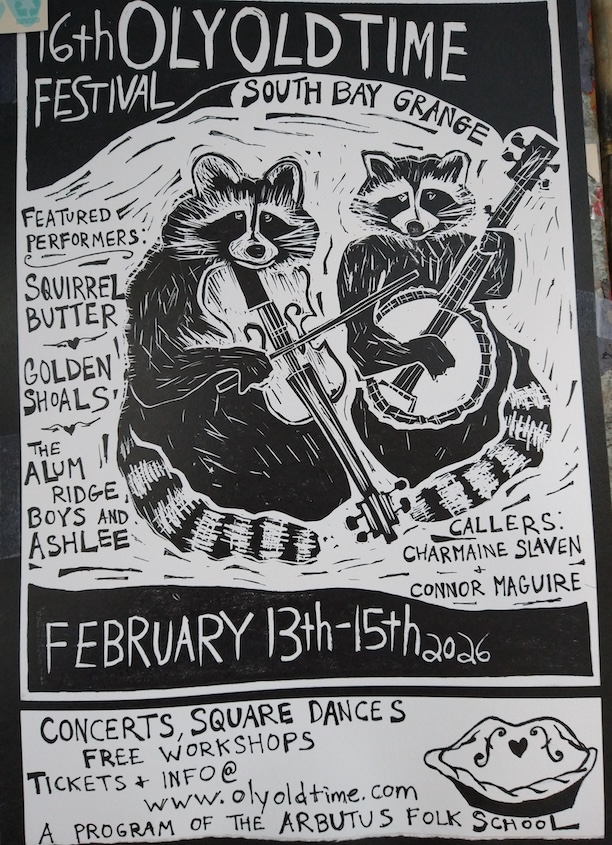 16th OLY OLD TIME
FESTIVAL
SOUTH BAY GRANGE
FEATURED
PERFORMERS:
SQUIRREL
BUTTER
GOLDEN
SHOALS
THE
ALUM
RIDGE
BOYS AND
ASHLEE
CALLERS:
CHARMAINE SLAVEN
+
CONNOR MAGUIRE
FEBRUARY 13th-15th 2026
CONCERTS, SQUARE DANCES
FREE WORKSHOPS
TICKETS + INFO @
www.olyoldtime.com
A PROGRAM OF THE ARBUTUS FOLK SCHOOL